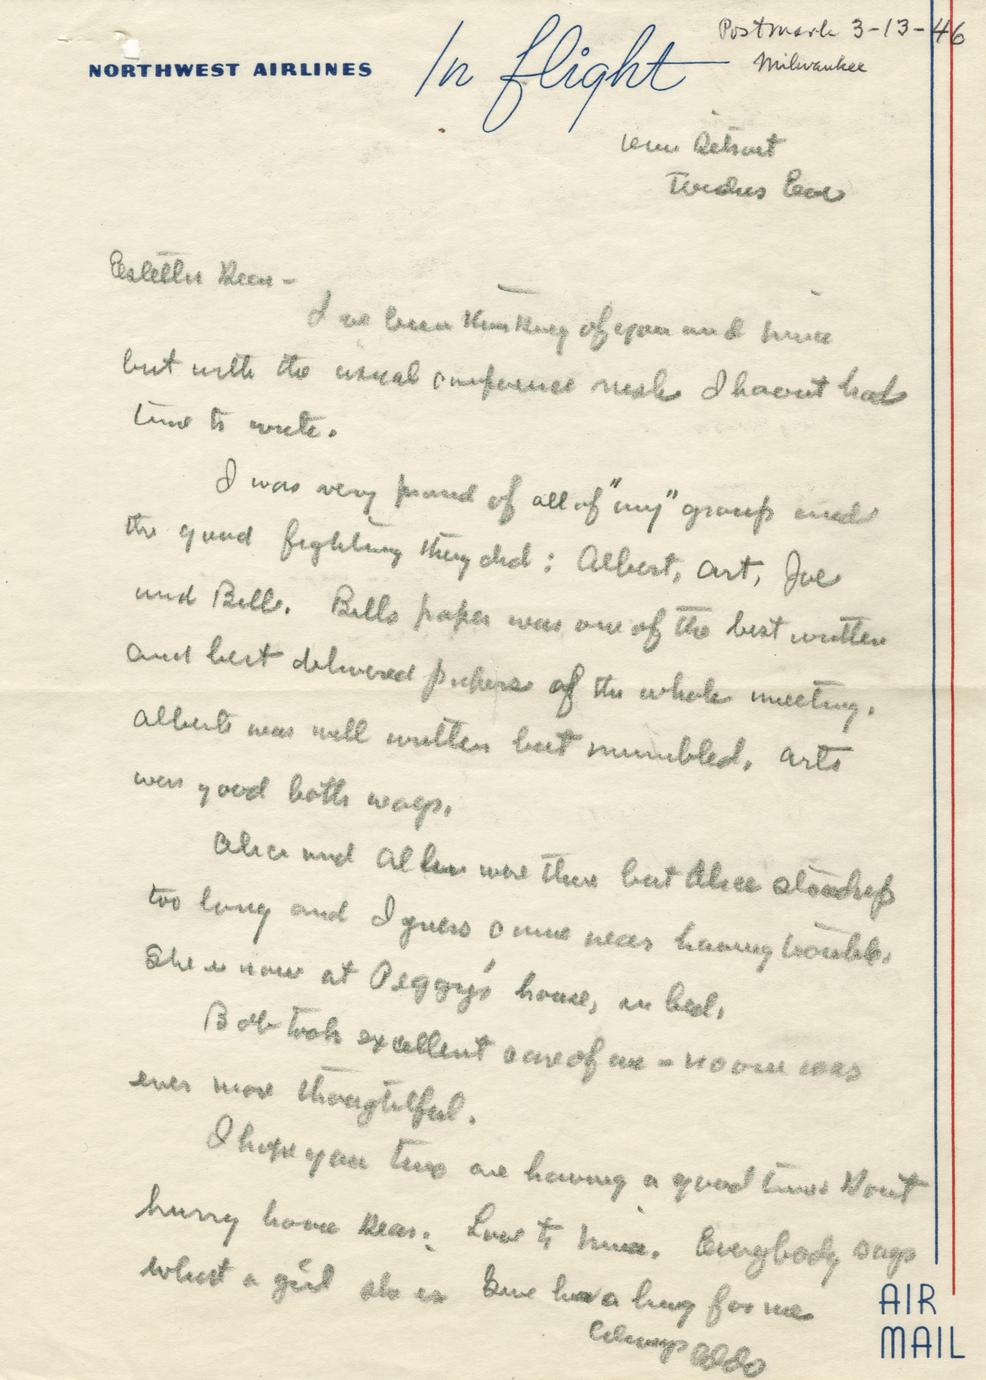 Postmark 3-13-46
NORTHWEST AIRLINES In flight Milwaukee
over Detroit
Tuesday Eve
Estella Dear -
I've been thinking of you and Nina
but with the usual conference rush I havent had
time to write.
I was very proud of all of "my" group and
the good fighting they did: Albert, Art, Joe
and Bill. Bills paper was one of the best written
and best delivered papers of the whole meeting.
Alberts was well written but mumbled. Arts
was good both ways.
Alice and Allen were there but Alice stood up
too long and I guess came near having trouble.
She is now at Peggy's house, in bed.
Bob took excellent care of me - no one was
ever more thoughtful.
I hope you two are having a good time. Dont
hurry home dear. Love to Nina. Everybody says
what a girl she is Give her a hug for me
Always Aldo
AIR
MAIL